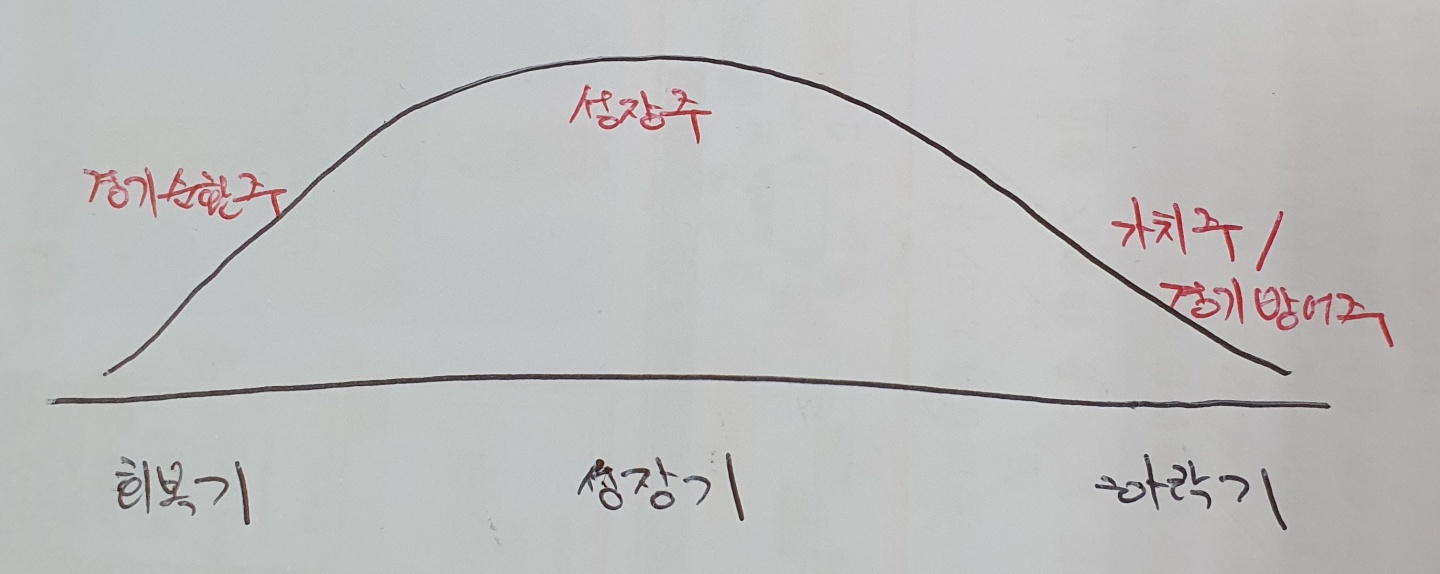 성장주
경기순환주
가치주 /
경기방어주
회복기 성장기 하락기